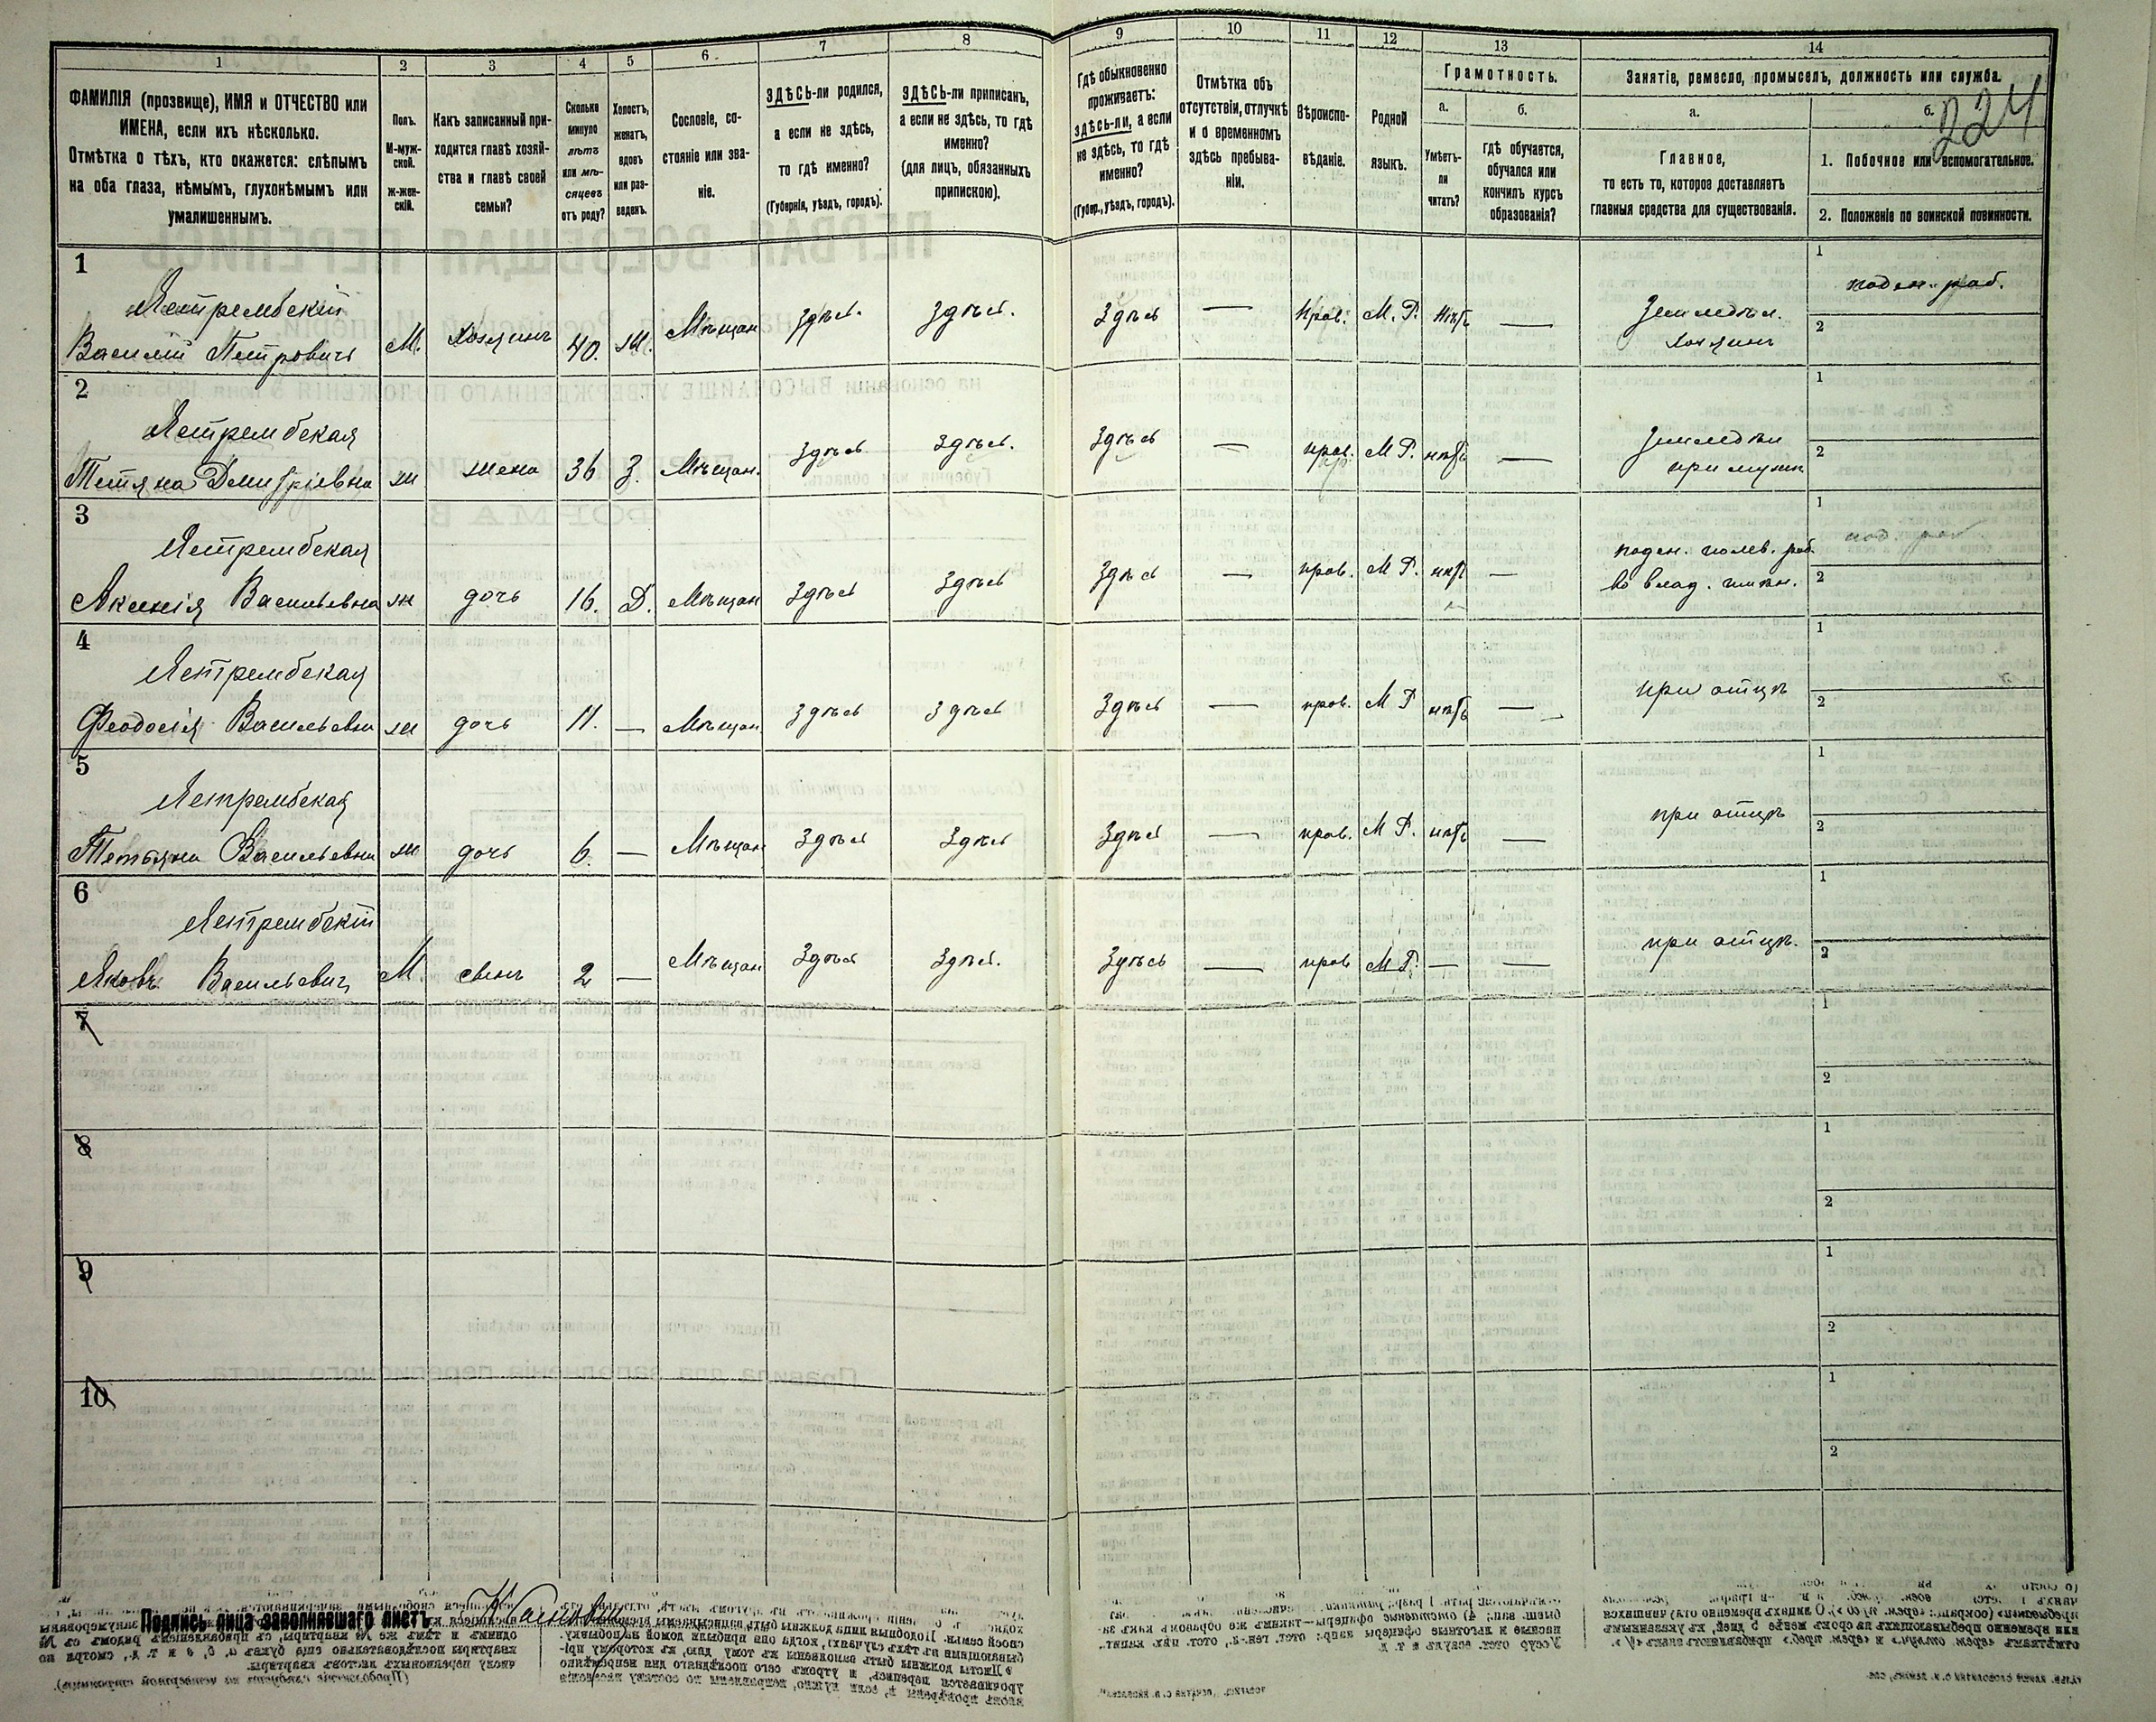 1 2 3 4 5 6 7 8 9 10 11 12 13 14
ФАМИЛІЯ (прозвище), ИМЯ и ОТЧЕСТВО или
ИМЕНА, если ихъ нѣсколько.
Отмѣтка о тѣхъ, кто окажется: слѣпымъ
на оба глаза, нѣмымъ, глухонѣмымъ или
умалишеннымъ.
Полъ.
М-муж-
ской.
ж-жен-
скій.
Какъ записанный при-
ходится главѣ хозяй-
ства и главѣ своей
семьи?
Сколько
минуло
лѣтъ
или мѣ-
сяцевъ
отъ роду?
Холостъ,
женатъ,
вдовъ
или раз-
веденъ.
Сословіе, со-
стояніе или зва-
ніе.
ЗДѢСЬ-ли родился,
а если не здѣсь,
то гдѣ именно?
(Губернія, уѣздъ, городъ).
ЗДѢСЬ-ли приписанъ,
а если не здѣсь, то гдѣ
именно?
(для лицъ, обязанныхъ
припискою).
Гдѣ обыкновенно
проживаетъ:
здѣсь-ли, а если
не здѣсь, то гдѣ
именно?
(Губер., уѣздъ, городъ).
Отмѣтка объ
отсутствіи, отлучкѣ
и о временномъ
здѣсь пребыва-
ніи.
Вѣроиспо-
вѣданіе.
Родной
языкъ.
Грамотность.
а.
Умѣетъ-
ли
читать?
б.
гдѣ обучается,
обучался или
кончилъ курсъ
образованія?
Занятіе, ремесло, промыселъ, должность или служба.
а.
Главное,
то есть то, которое доставляетъ
главныя средства для существованія.
б.
224
1. Побочное или вспомогательное.
2. Положеніе по воинской повинности.
1
Ястрембскій
Василій Петровичъ М. Хозяинъ 40. ж. Мѣщан Здѣсь. Здѣсь. Здѣсь — Прав. М. Р. Нѣтъ — Земледѣл.
хозяинъ
1 поден. раб.
2
2
Ястрембская
Тетяна Дмитріевна ж жена 36 З. Мѣщан. Здѣсь Здѣсь. Здѣсь — прав. М Р. нѣтъ — Земледѣл
при мужѣ
1
2
3
Ястрембская
Аксенія Васильевна ж дочь 16. Д. Мѣщан Здѣсь Здѣсь Здѣсь — прав. М Р. нѣтъ — поден. полев. раб.
во влад. имѣн.
1 под. раб
2
4
Ястрембская
Феодосія Васильевна ж дочь 11. — Мѣщан Здѣсь Здѣсь Здѣсь — прав. М Р нѣтъ — при отцѣ
1
2
5
Ястрембская
Тетьяна Васильевна ж дочь 6. — Мѣщан Здѣсь Здѣсь Здѣсь — прав. М Р. нѣтъ — при отцѣ
1
2
6
Ястрембскій
Яковъ Васильевич М. сынъ 2 — Мѣщан Здѣсь Здѣсь. Здѣсь — прав М Р. — — при отцѣ.
1
2
7
1
2
8
1
2
9
1
2
10
1
2
Подпись лица заполнявшаго листъ